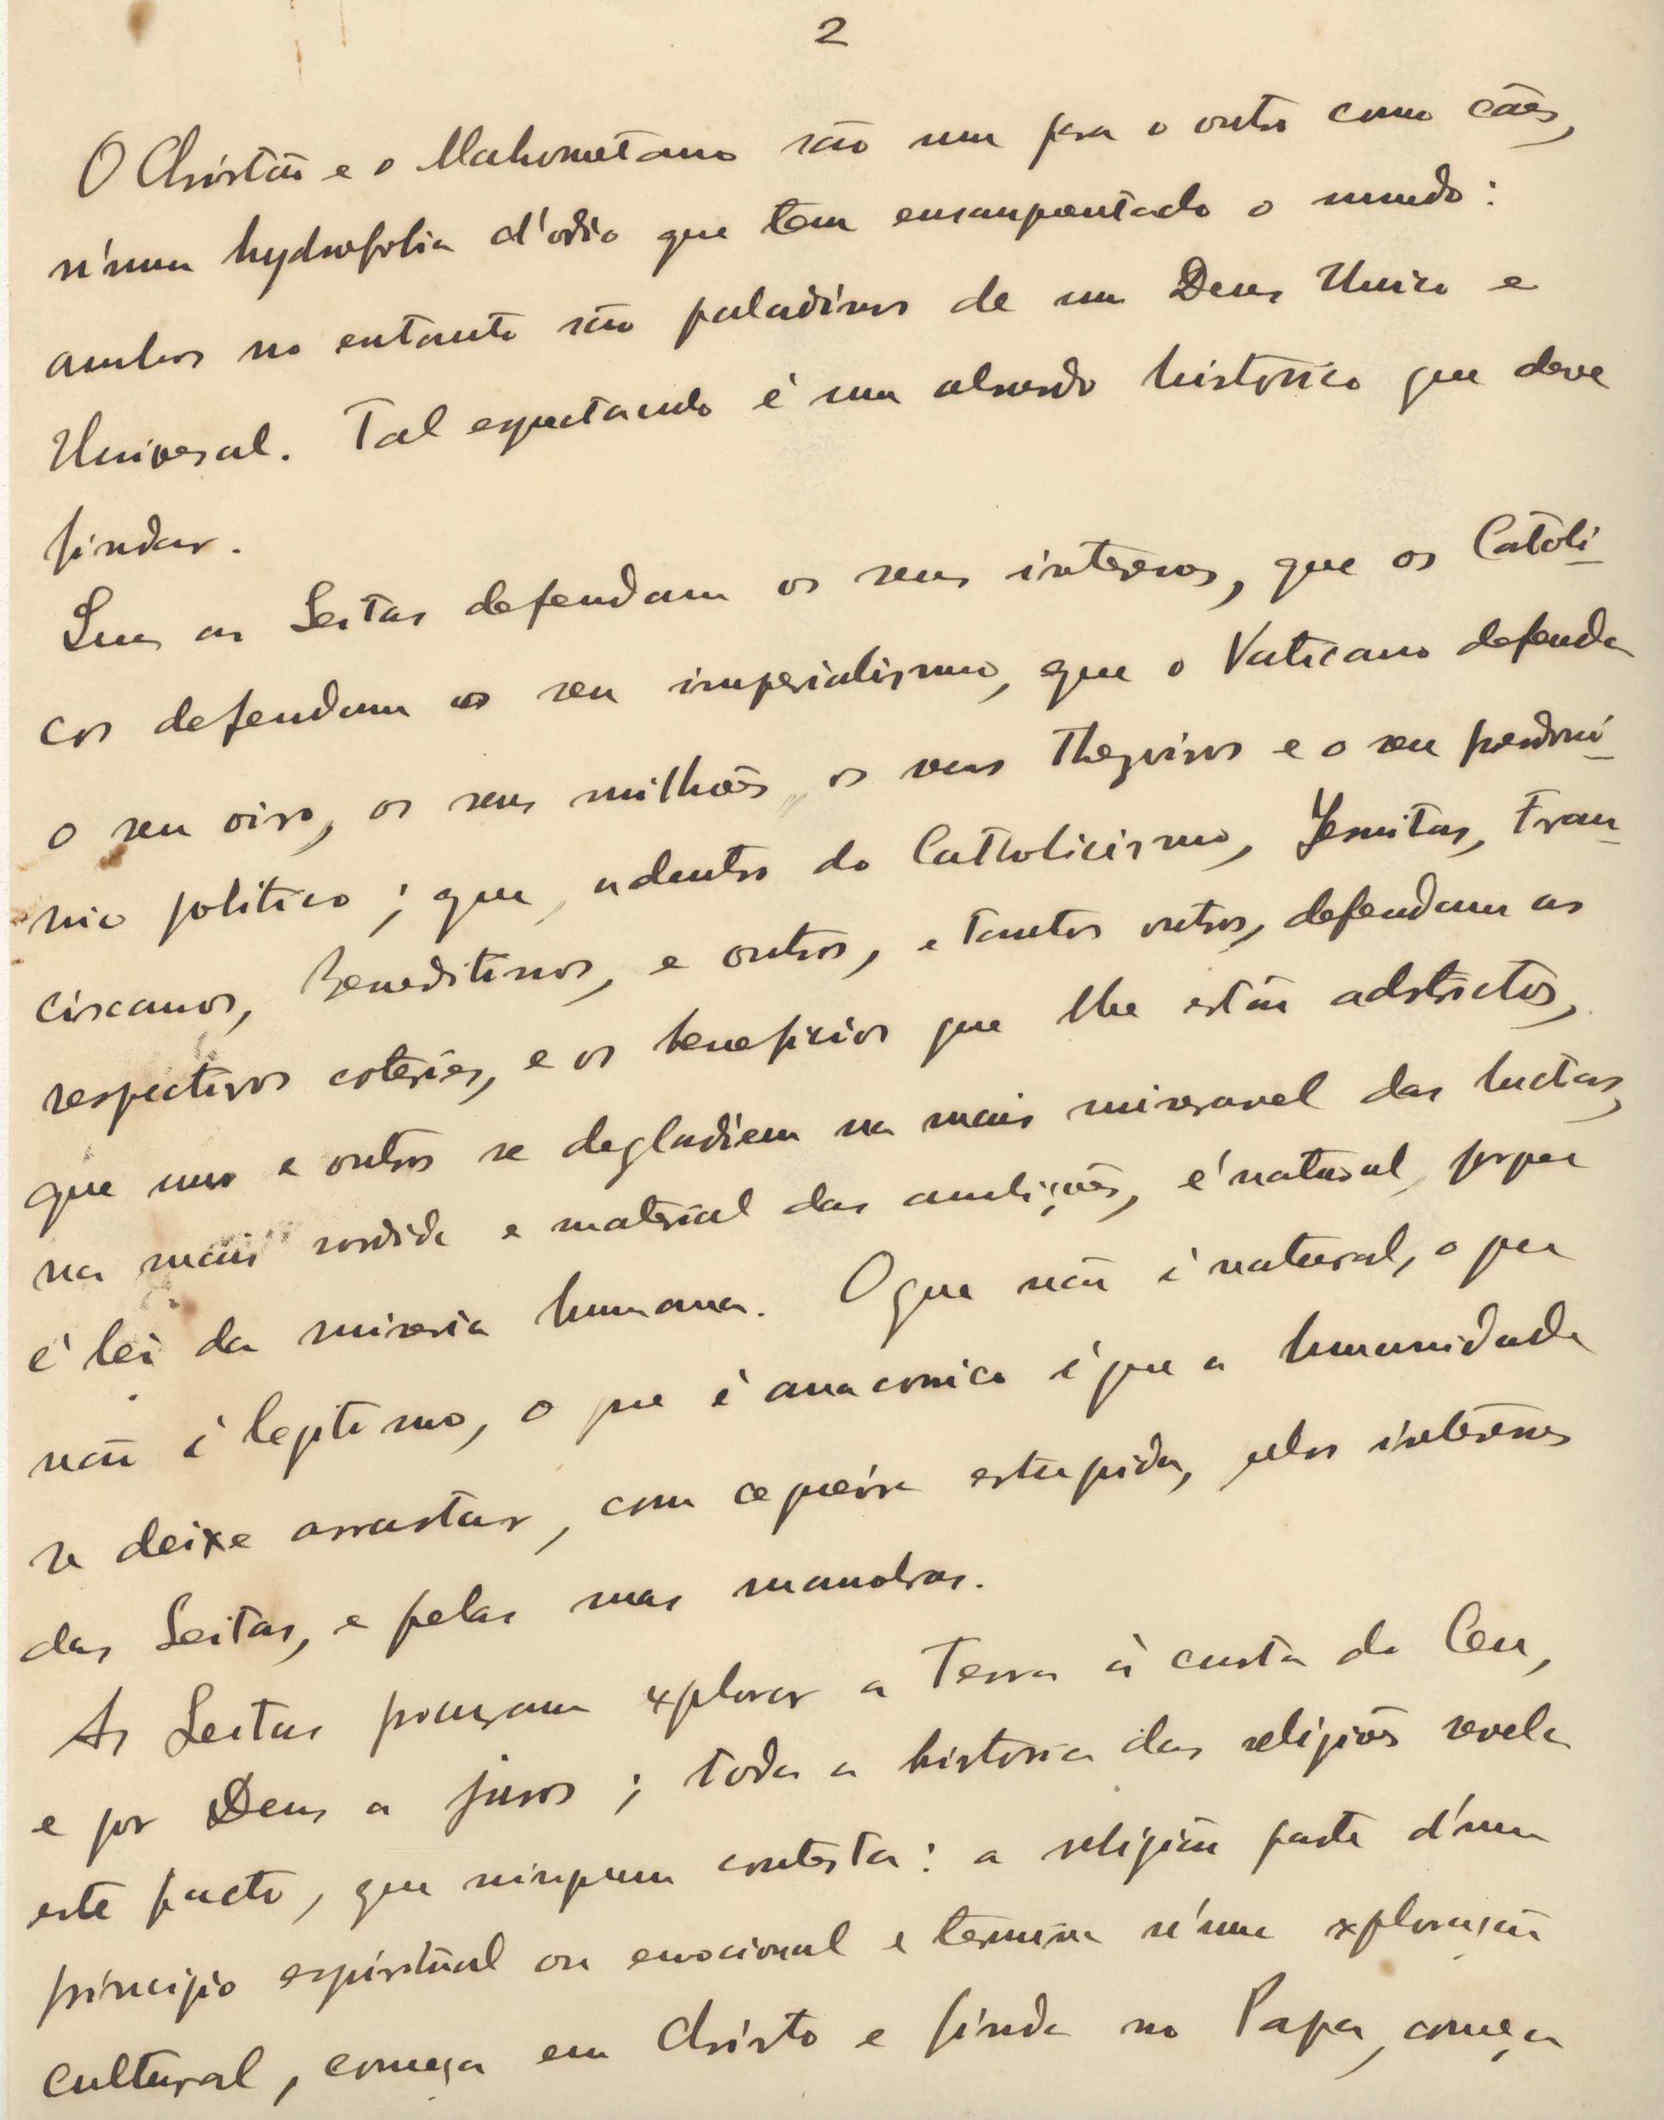 2
O Christão e o Mahometano são um para o outro como cães,
n'uma hydrofobia d'odio que tem ensanguentado o mundo:
ambos no entanto são paladinos de um Deus Unico e
Universal. Tal espectaculo é um absurdo historico que deve
findar.
Que as Seitas defendam os seus interesses, que os Catoli-
cos defendam o seu imperialismo, que o Vaticano defenda
o seu oiro, os seus milhões, os seus Thezoiros e o seu predomi-
nio politico; que, adentro do Catholicismo, Jesuitas, Fran-
ciscanos, Beneditinos, e outros, e tantos outros, defendam as
respectivas coteries, e os beneficios que lhe estão adstrictos,
que uns e outros se degladiem na mais miseravel das luctas,
na mais sordida e material das ambições, é natural, porque
é lei da miseria humana. O que não é natural, o que
não é legitimo, o que é anaconico é que a humanidade
se deixe arrastar, com cegueira estupida, pelos interesses
das Seitas, e pelas suas manobras.
As Seitas procuram explorar a Terra à custa do Ceu,
e por Deus a juros; toda a historia das religiões revela
este facto, que ninguem contesta: a religião parte d'um
principio espiritual ou emocional e termina n'uma exploração
cultural, começa em Christo e finda no Papa, começa